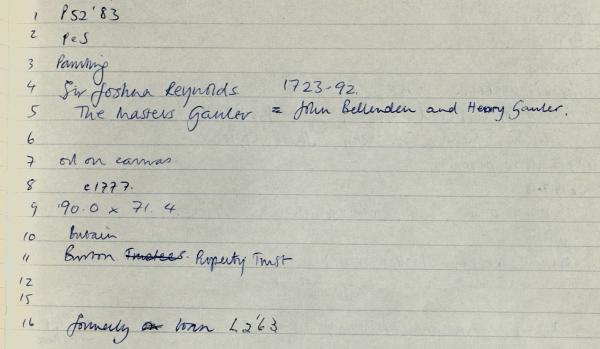 1 P52'83
2 PeS
3 Painting
4 Sir Joshua Reynolds 1723-92.
5 The Masters Gawler = John Bellenden and Henry Gawler.
6
7 oil on canvas
8 c1777.
9 90.0 x 71.4
10 Britain
11 Burton Trustees. Property Trust
12
15
16 formerly on loan L2'63